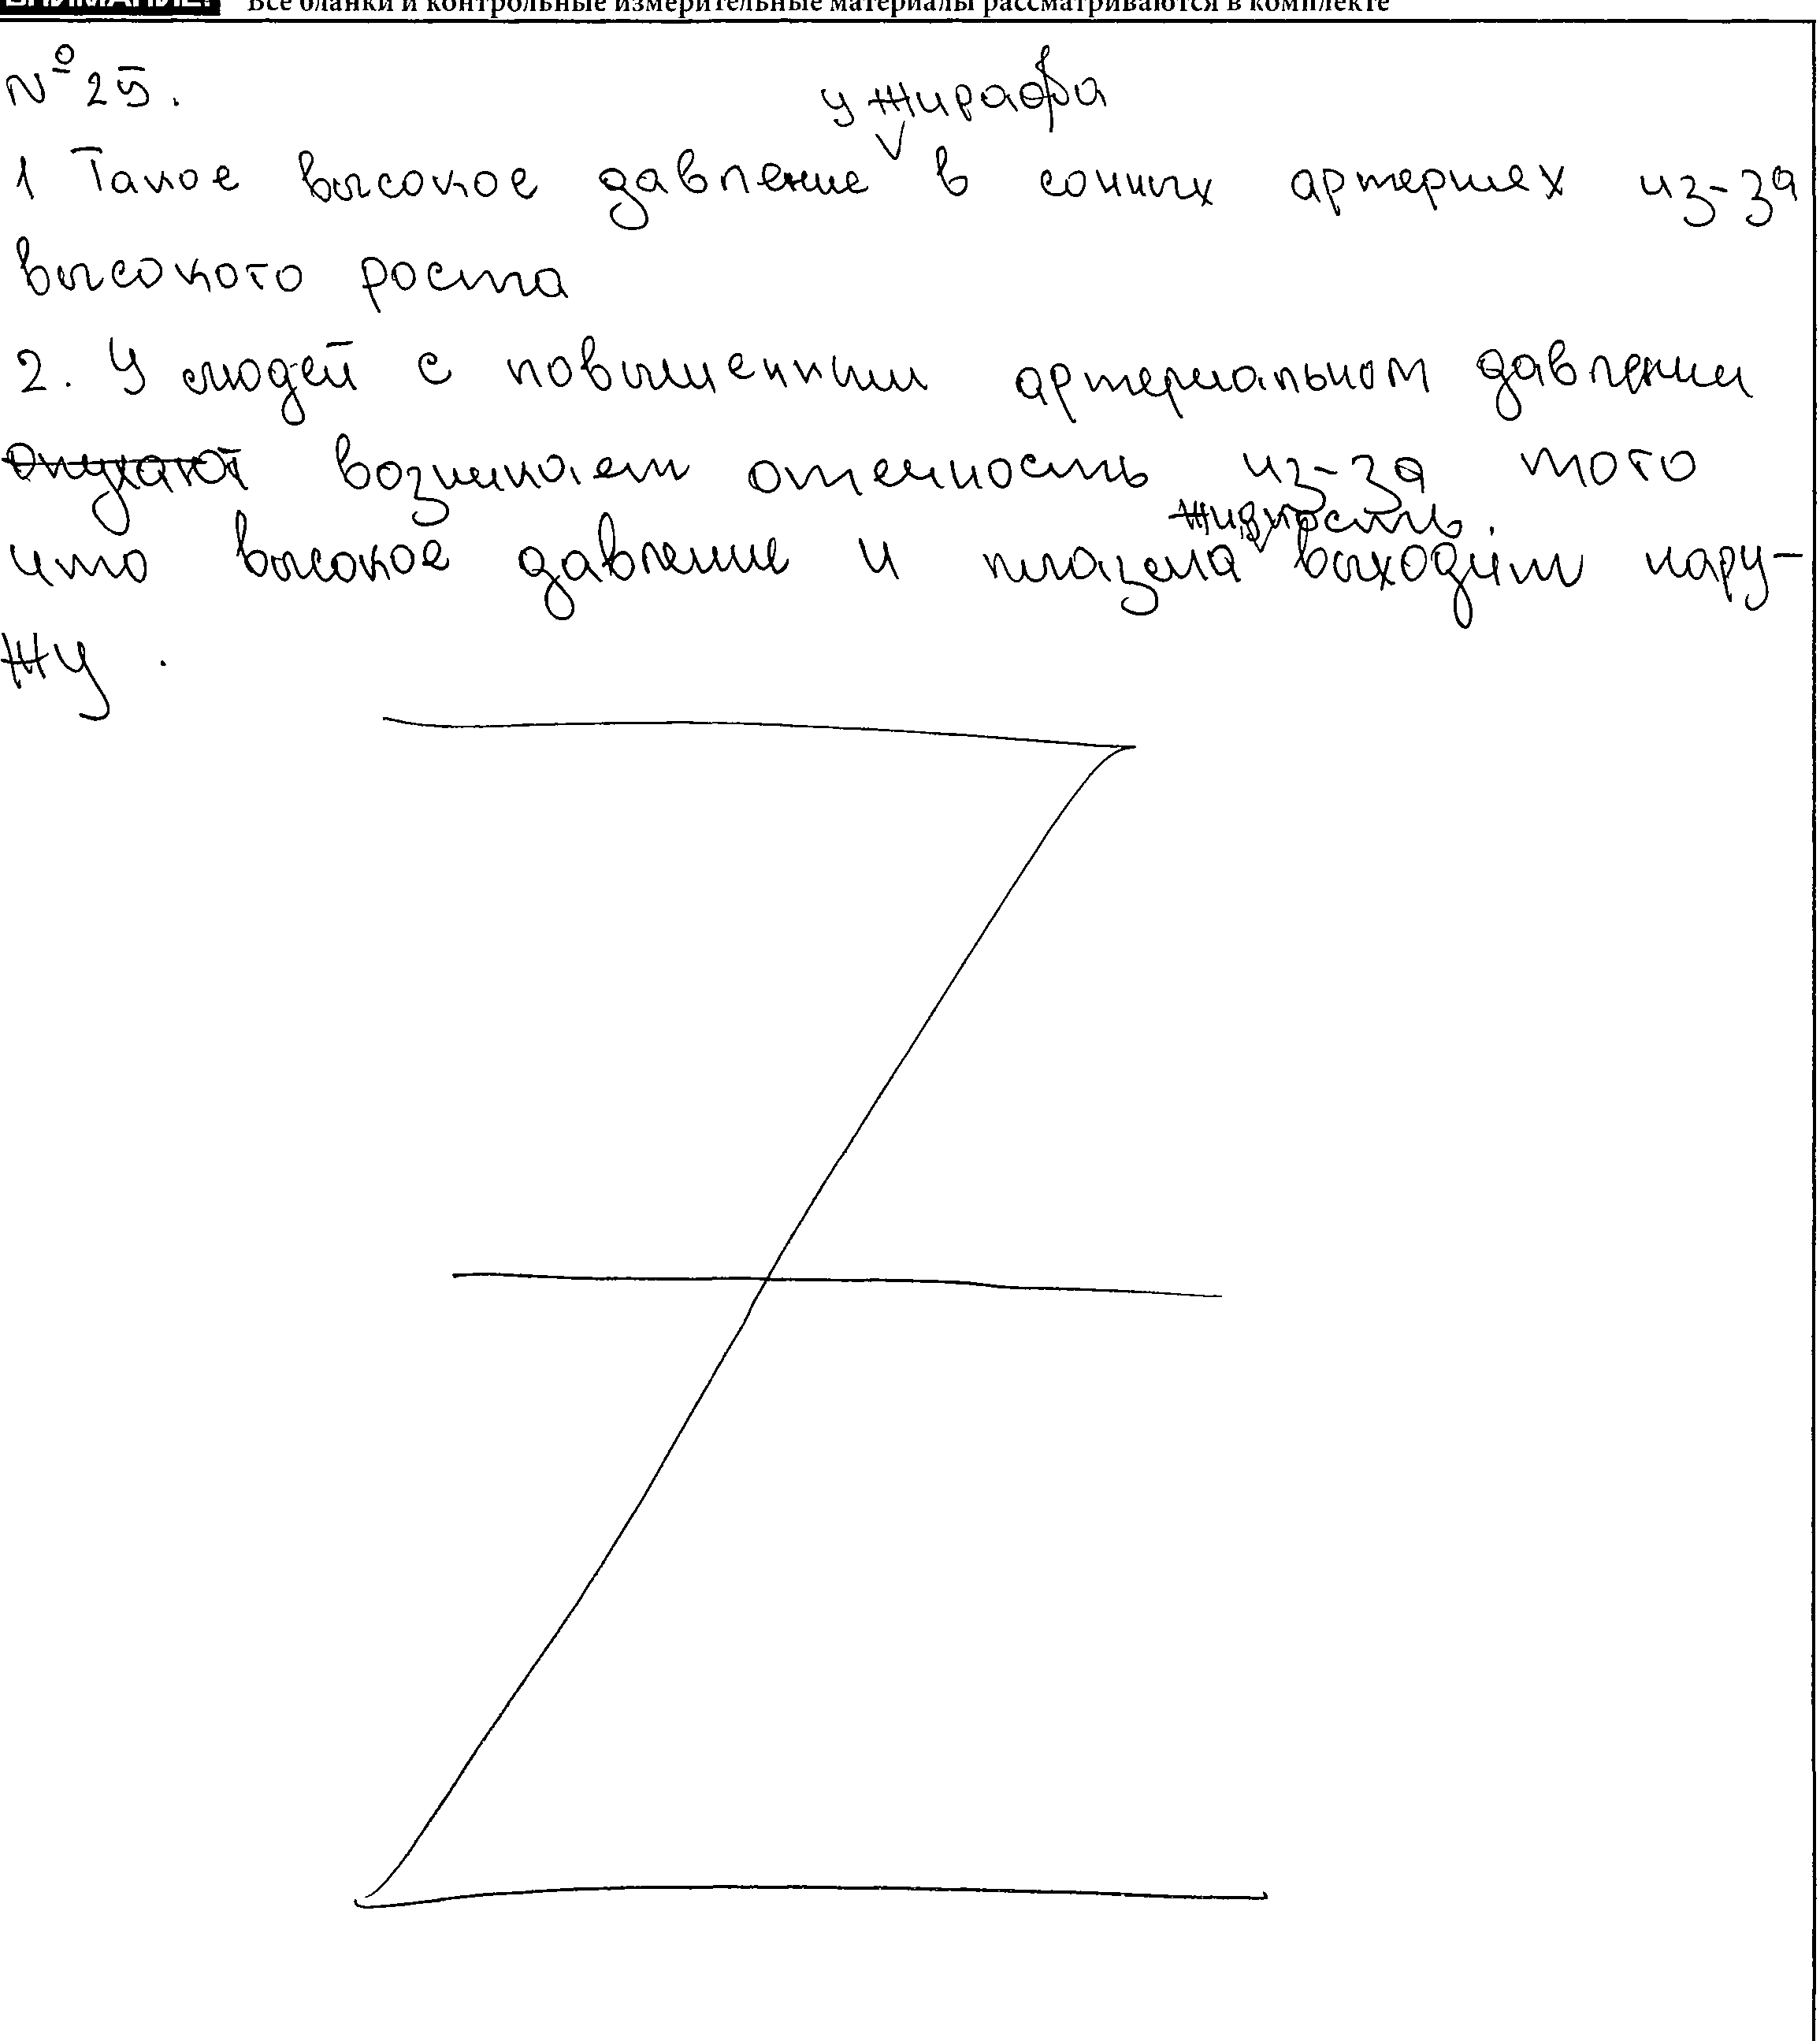 ВНИМАНИЕ! Все бланки и контрольные измерительные материалы рассматриваются в комплекте
№ 25.
у жирафа
1 Такое высокое давление в сонных артериях из-за
высокого роста
2. У людей с повышенным артериальном давлении
опухают возникает отечность из-за того
жидкость.
что высокое давление и плазма выходит нару-
жу.